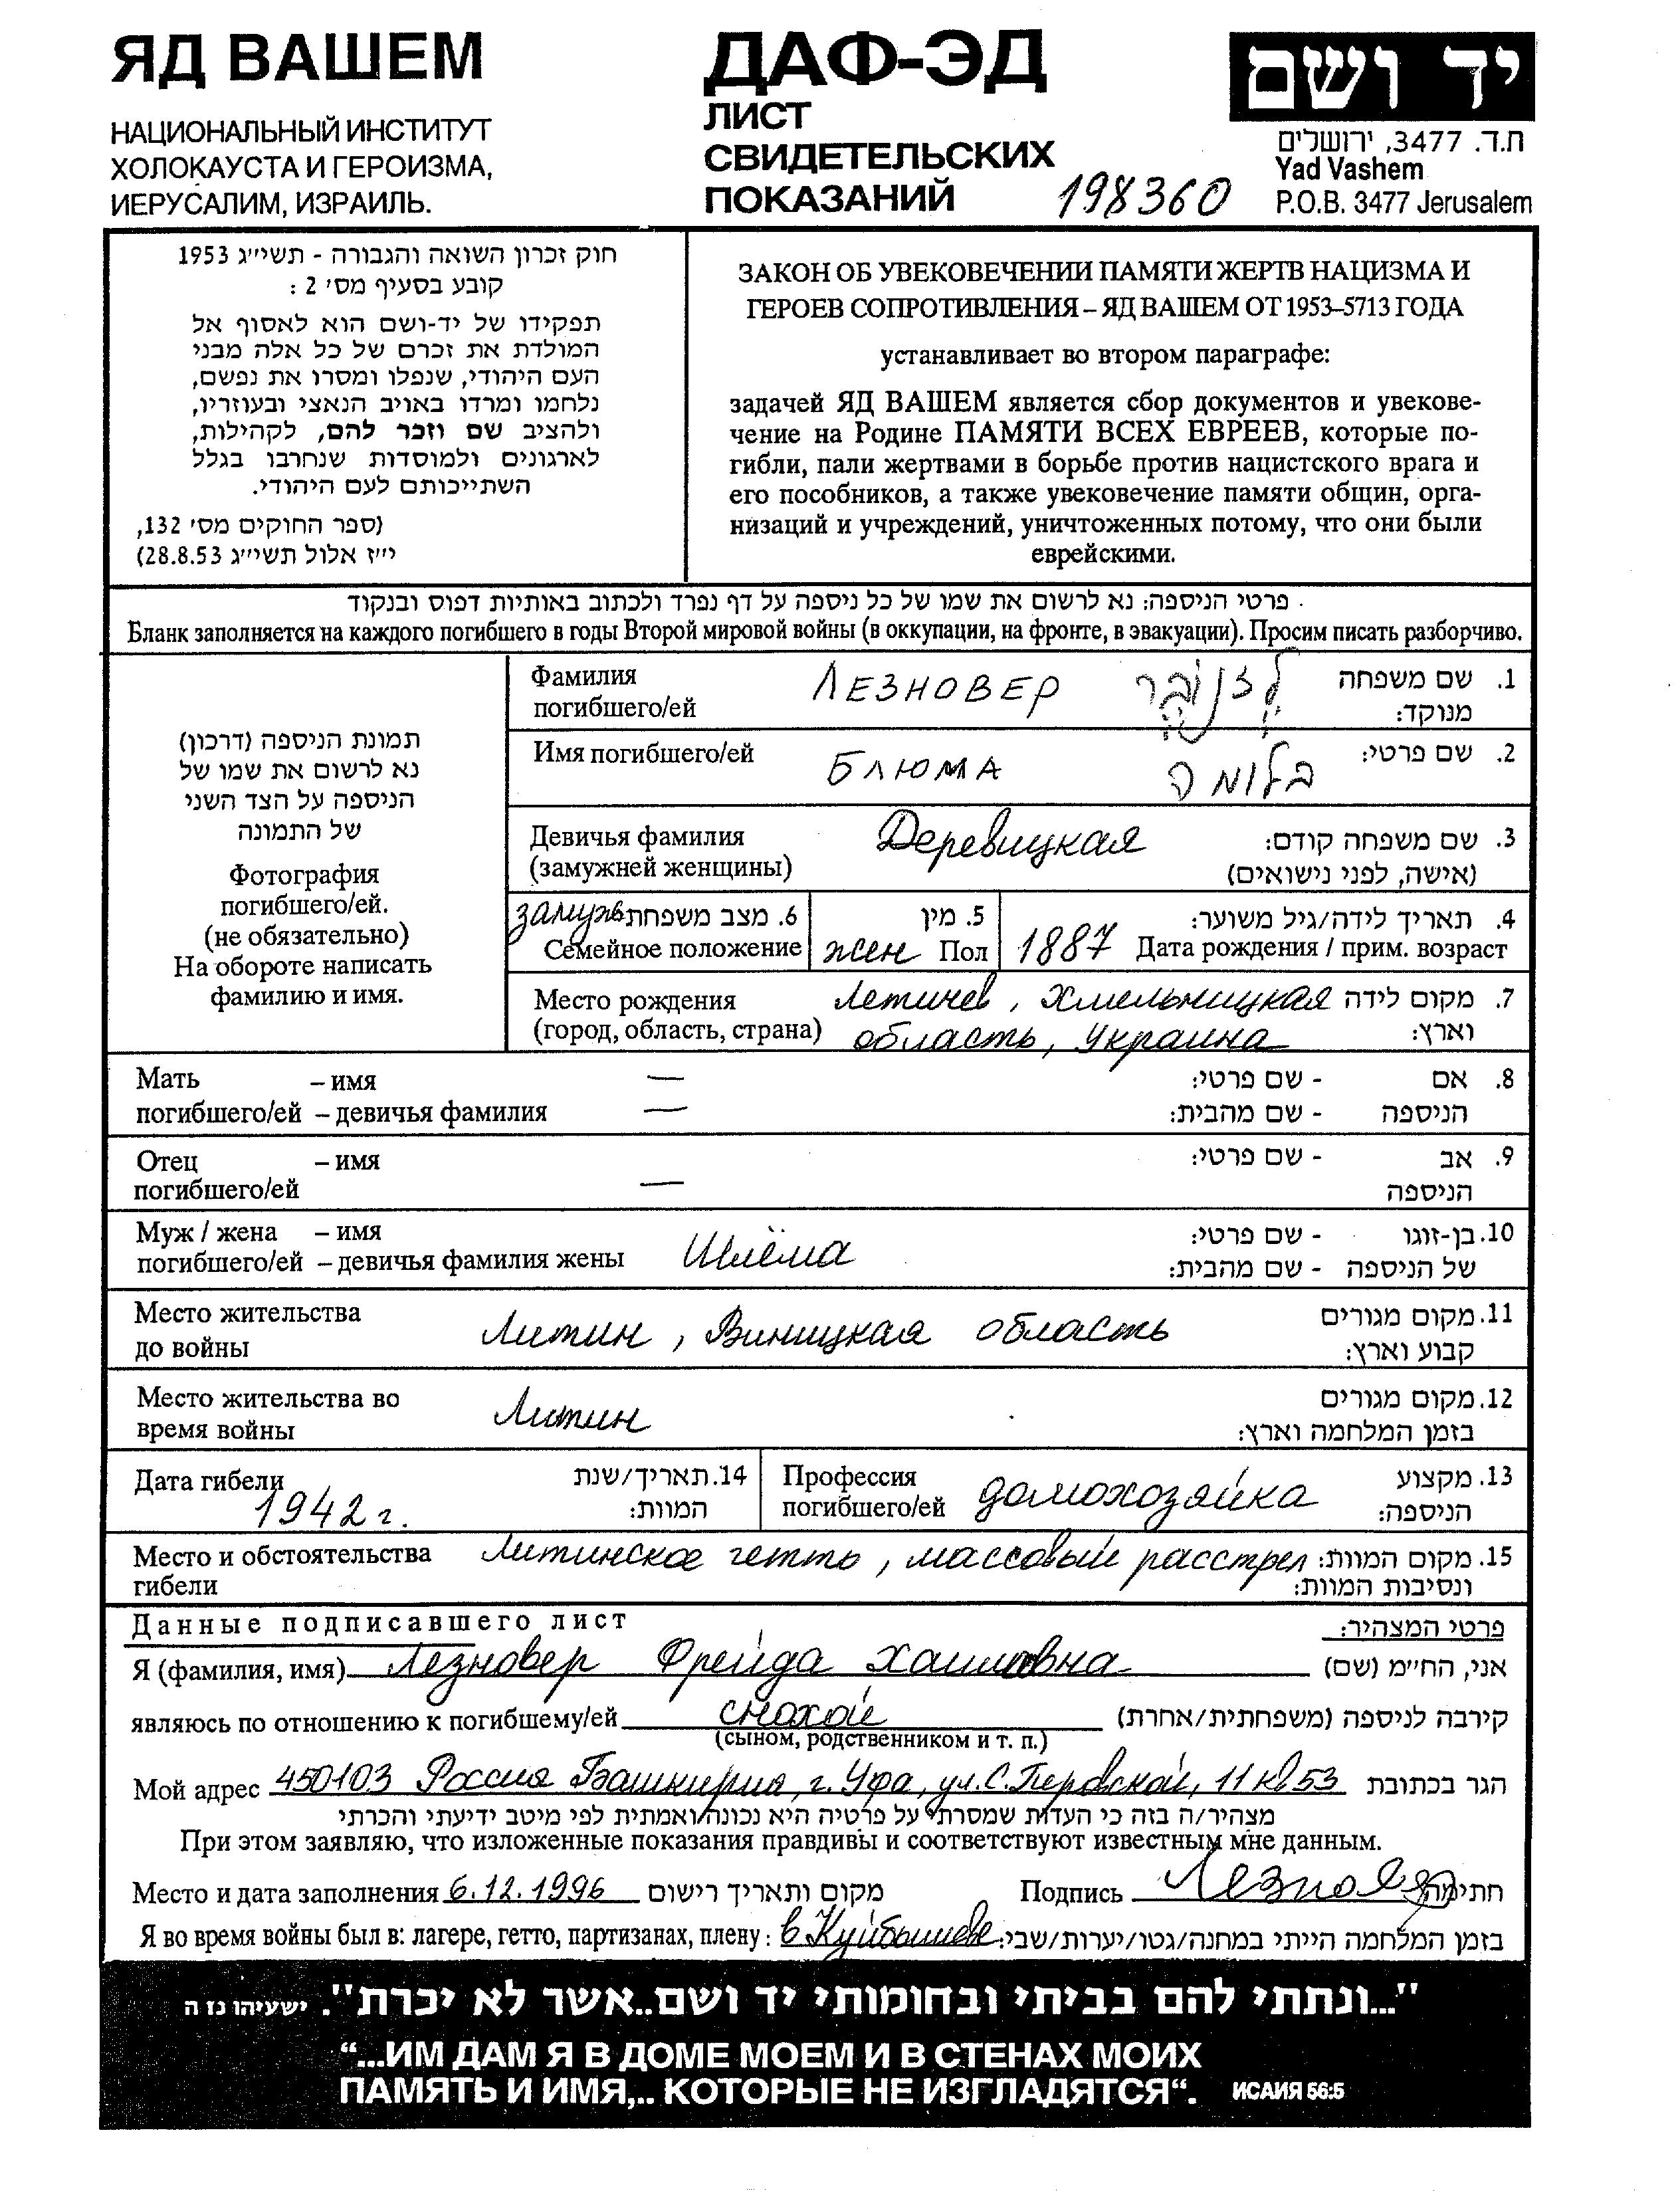 ЯД ВАШЕМ
НАЦИОНАЛЬНЫЙ ИНСТИТУТ
ХОЛОКАУСТА И ГЕРОИЗМА,
ИЕРУСАЛИМ, ИЗРАИЛЬ.
ДАФ-ЭД
ЛИСТ
СВИДЕТЕЛЬСКИХ
ПОКАЗАНИЙ 198360
יד ושם
ת.ד. 3477, ירושלים
Yad Vashem
P.O.B. 3477 Jerusalem
חוק זכרון השואה והגבורה - תשי״ג 1953
קובע בסעיף מס׳ 2 :
תפקידו של יד-ושם הוא לאסוף אל
המולדת את זכרם של כל אלה מבני
העם היהודי, שנפלו ומסרו את נפשם,
נלחמו ומרדו באויב הנאצי ובעוזריו,
ולהציב שם וזכר להם, לקהילות,
לארגונים ולמוסדות שנחרבו בגלל
השתייכותם לעם היהודי.
(ספר החוקים מס׳ 132,
י״ז אלול תשי״ג 28.8.53)
ЗАКОН ОБ УВЕКОВЕЧЕНИИ ПАМЯТИ ЖЕРТВ НАЦИЗМА И
ГЕРОЕВ СОПРОТИВЛЕНИЯ – ЯД ВАШЕМ ОТ 1953–5713 ГОДА
устанавливает во втором параграфе:
задачей ЯД ВАШЕМ является сбор документов и увекове-
чение на Родине ПАМЯТИ ВСЕХ ЕВРЕЕВ, которые по-
гибли, пали жертвами в борьбе против нацистского врага и
его пособников, а также увековечение памяти общин, орга-
низаций и учреждений, уничтоженных потому, что они были
еврейскими.
פרטי הניספה: נא לרשום את שמו של כל ניספה על דף נפרד ולכתוב באותיות דפוס ובנקוד
Бланк заполняется на каждого погибшего в годы Второй мировой войны (в оккупации, на фронте, в эвакуации). Просим писать разборчиво.
תמונת הניספה (דרכון)
נא לרשום את שמו של
הניספה על הצד השני
של התמונה
Фотография
погибшего/ей.
(не обязательно)
На обороте написать
фамилию и имя.
Фамилия ЛЕЗНОВЕР לזנובר 1. שם משפחה
погибшего/ей מנוקד:
Имя погибшего/ей БЛЮМА בלומה 2. שם פרטי:
Девичья фамилия Деревицкая 3. שם משפחה קודם:
(замужней женщины) (אישה, לפני נישואים)
замуж 6. מצב משפחתי 5. מין 4. תאריך לידה/גיל משוער:
Семейное положение жен Пол 1887 Дата рождения / прим. возраст
Место рождения Летичев, Хмельницкая 7. מקום לידה
(город, область, страна) область, Украина וארץ:
Мать – имя — - שם פרטי: 8. אם
погибшего/ей – девичья фамилия — - שם מהבית: הניספה
Отец – имя - שם פרטי: 9. אב
погибшего/ей — הניספה
Муж / жена – имя - שם פרטי: 10. בן-זוגו
погибшего/ей – девичья фамилия жены Шлёма - שם מהבית: של הניספה
Место жительства Литин, Виницкая область 11. מקום מגורים
до войны קבוע וארץ:
Место жительства во Литин 12. מקום מגורים
время войны בזמן המלחמה וארץ:
Дата гибели 14. תאריך/שנת Профессия домохозяйка 13. מקצוע
1942 г. המוות: погибшего/ей הניספה:
Место и обстоятельства Литинское гетто, массовый расстрел 15. מקום המוות:
гибели ונסיבות המוות:
Данные подписавшего лист פרטי המצהיר:
Я (фамилия, имя) Лезновер Фрейда Хаимовна אני, החי״מ (שם)
являюсь по отношению к погибшему/ей снохой קירבה לניספה (משפחתית/אחרת)
(сыном, родственником и т. п.)
Мой адрес 450103 Россия Башкирия, г. Уфа, ул. С. Перовской, 11 кв 53 הגר בכתובת
מצהיר/ה בזה כי העדות שמסרתי על פרטיה היא נכונה ואמתית לפי מיטב ידיעתי והכרתי
При этом заявляю, что изложенные показания правдивы и соответствуют известным мне данным.
Место и дата заполнения 6.12.1996 מקום ותאריך רישום Подпись חתימה
Я во время войны был в: лагере, гетто, партизанах, плену: в Куйбышеве בזמן המלחמה הייתי במחנה/גטו/יערות/שבי:
"...ונתתי להם בביתי ובחומותי יד ושם..אשר לא יכרת". ישעיהו נז ה
“...ИМ ДАМ Я В ДОМЕ МОЕМ И В СТЕНАХ МОИХ
ПАМЯТЬ И ИМЯ,.. КОТОРЫЕ НЕ ИЗГЛАДЯТСЯ“. ИСАИЯ 56:5